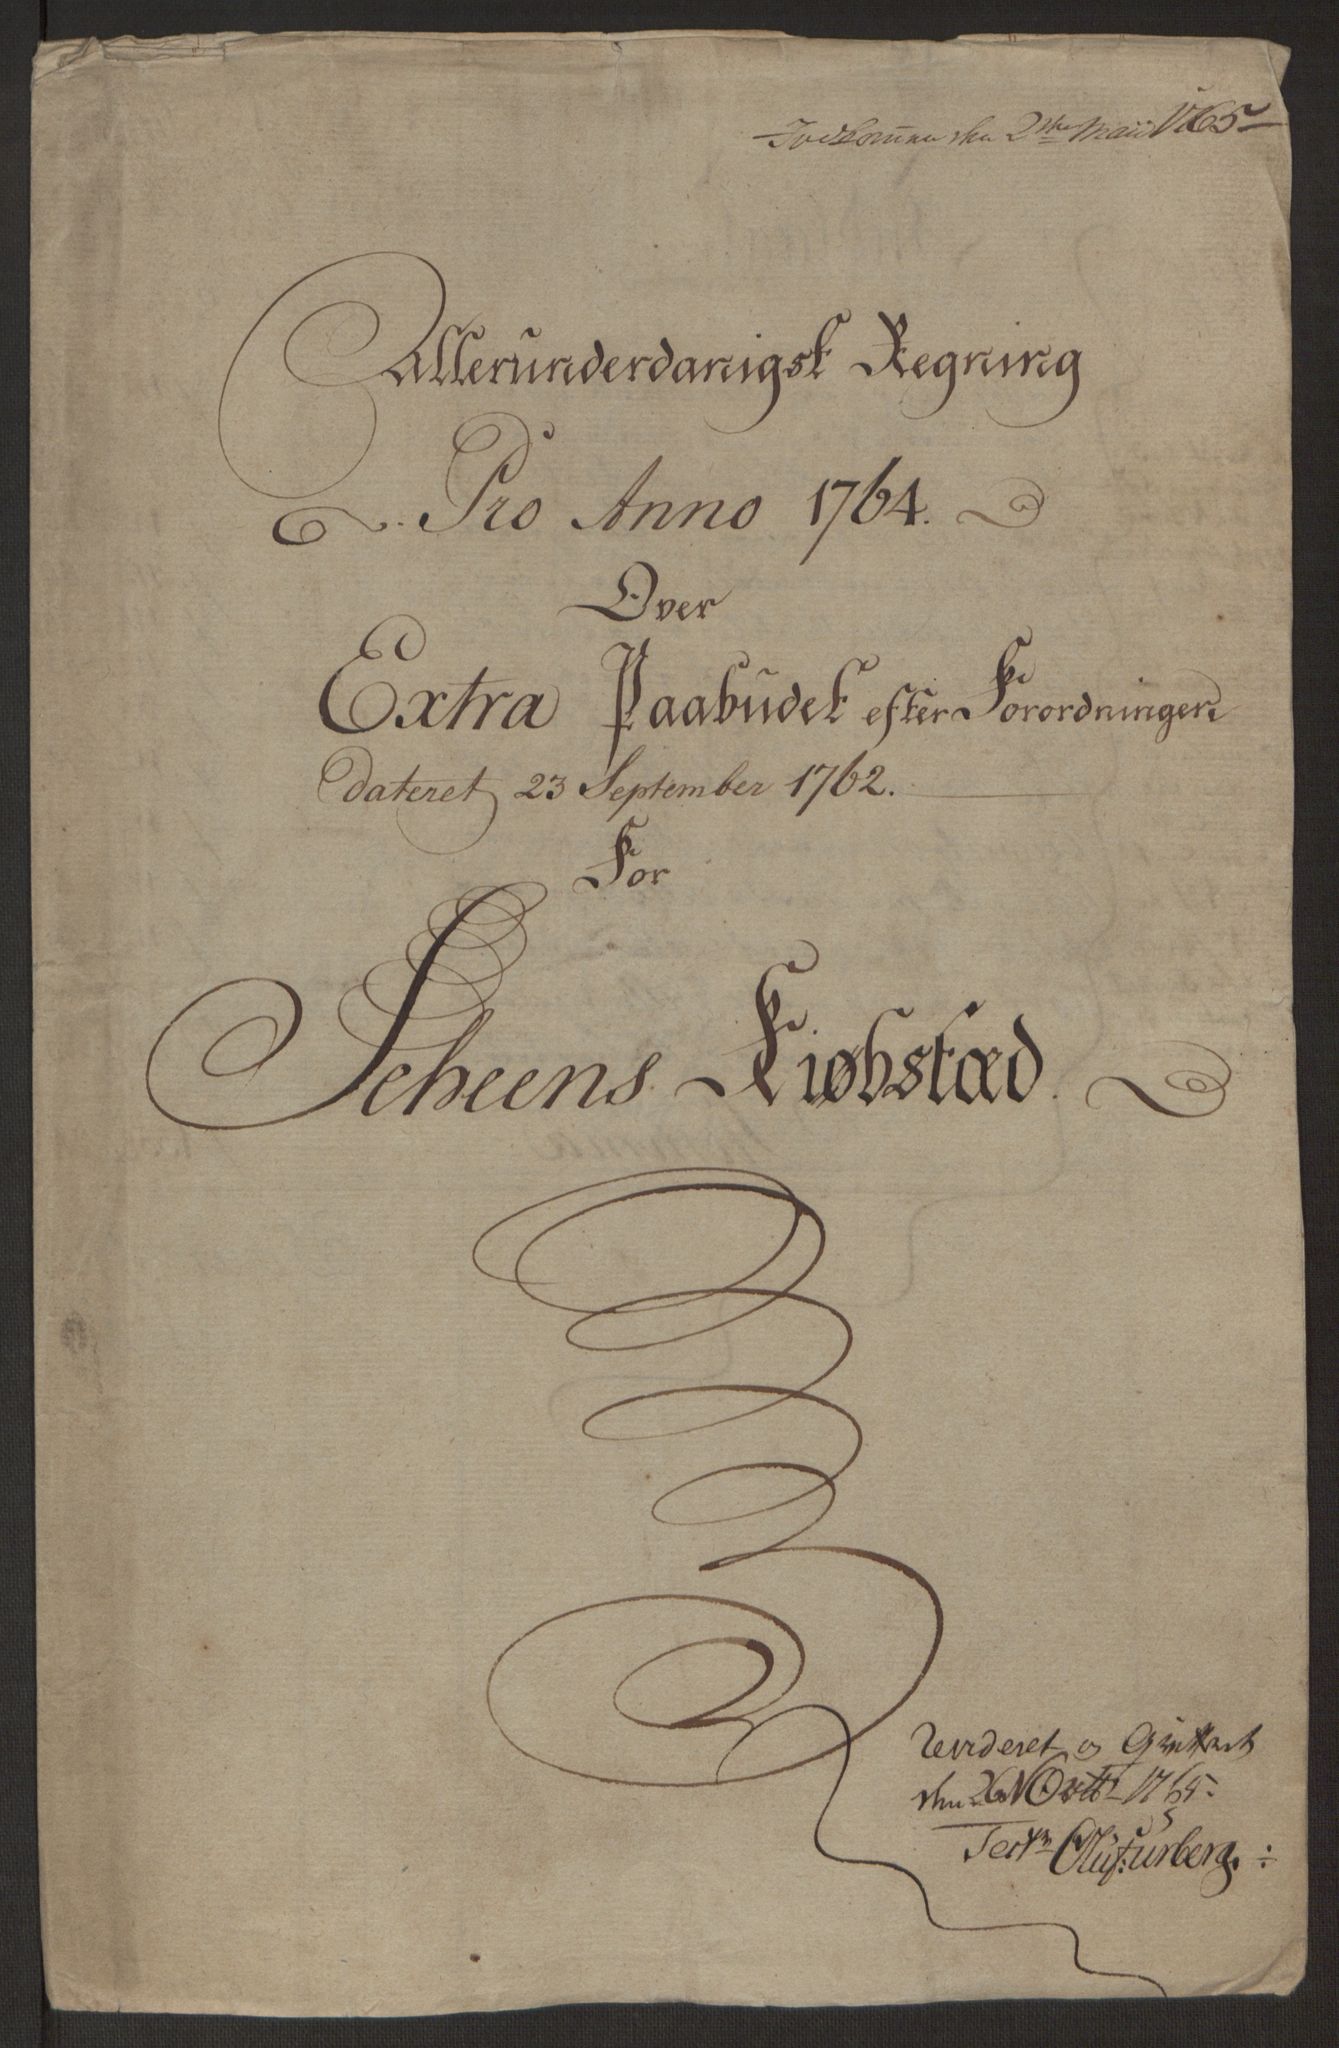 Indkommen den 2den Maii 1765
Allerunderdanigst Regning
Pro Anno 1764.
Over
Extra Paabudet efter Forordningen
dateret 23 September 1762.
For
Scheens Kiøbstæd.
Revideret og Qvitteret
den 26 Octb 1765.